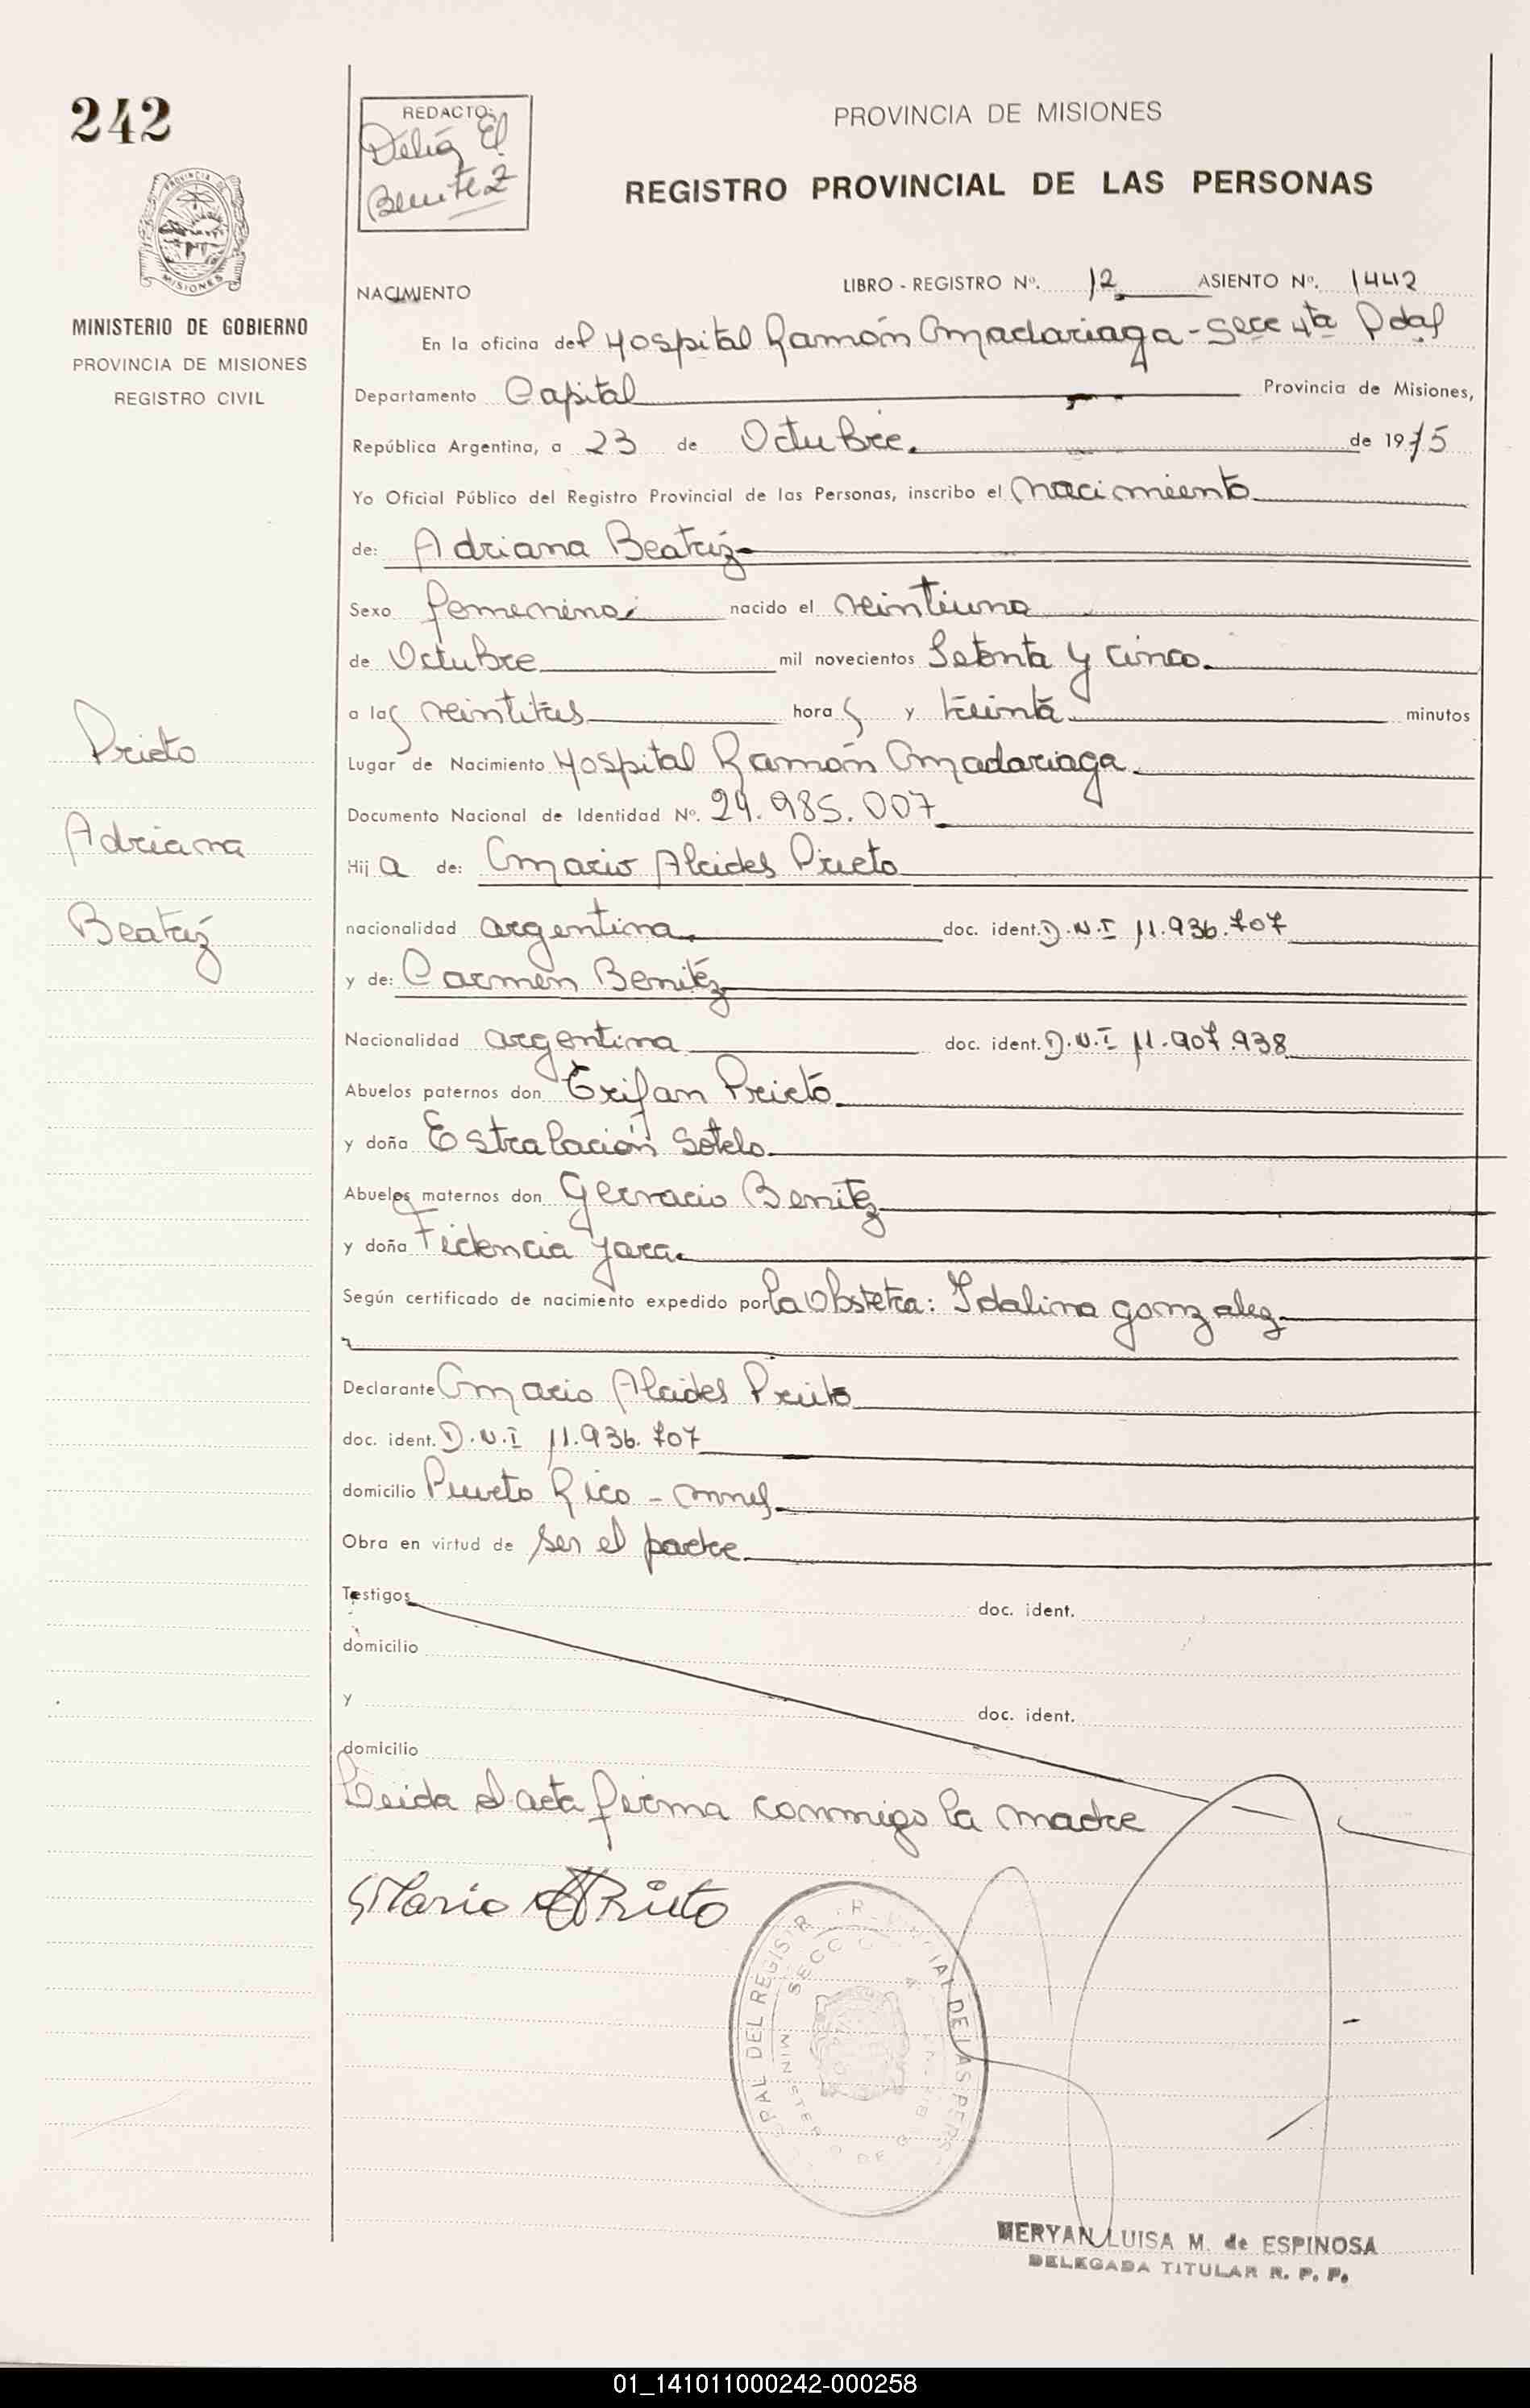 242
REDACTO:
Delia E.
Benitez
PROVINCIA DE MISIONES
REGISTRO PROVINCIAL DE LAS PERSONAS
PROVINCIA DE
MISIONES
MINISTERIO DE GOBIERNO
PROVINCIA DE MISIONES
REGISTRO CIVIL
NACIMIENTO
LIBRO - REGISTRO Nº. 12 ASIENTO Nº. 1442
En la oficina del Hospital Ramón Madariaga - Secc 4ta Pdas
Departamento Capital Provincia de Misiones,
República Argentina, a 23 de Octubre. de 1975
Yo Oficial Público del Registro Provincial de las Personas, inscribo el Nacimiento
de: Adriana Beatriz
Sexo femenino nacido el veintiuno
de Octubre mil novecientos Setenta y cinco.
a las veintitres horas y treinta minutos
Lugar de Nacimiento Hospital Ramón Madariaga
Documento Nacional de Identidad Nº. 24.985.007
Hija de: Mario Alcides Prieto
nacionalidad argentina. doc. ident. D.N.I 11.936.707
y de: Carmen Benitez
Nacionalidad argentina doc. ident. D.N.I 11.907.938
Abuelos paternos don Prieto
y doña Sotelo
Abuelos maternos don Gervacio Benitez
y doña Fidencia Jara.
Según certificado de nacimiento expedido por la Obstetra: Idalina Gonzalez
Declarante Mario Alcides Prieto
doc. ident. D.N.I 11.936.707
domicilio Puerto Rico - Mnes
Obra en virtud de ser el padre
Testigos doc. ident.
domicilio
y doc. ident.
domicilio
Leida el acta firma conmigo la madre
Mario A Prieto
Prieto
Adriana
Beatriz
MERYAN LUISA M. de ESPINOSA
DELEGADA TITULAR R. P. P.
01_141011000242-000258